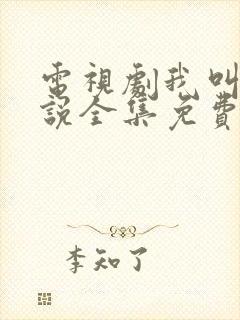 電視劇我叫
說全集免費
李知了